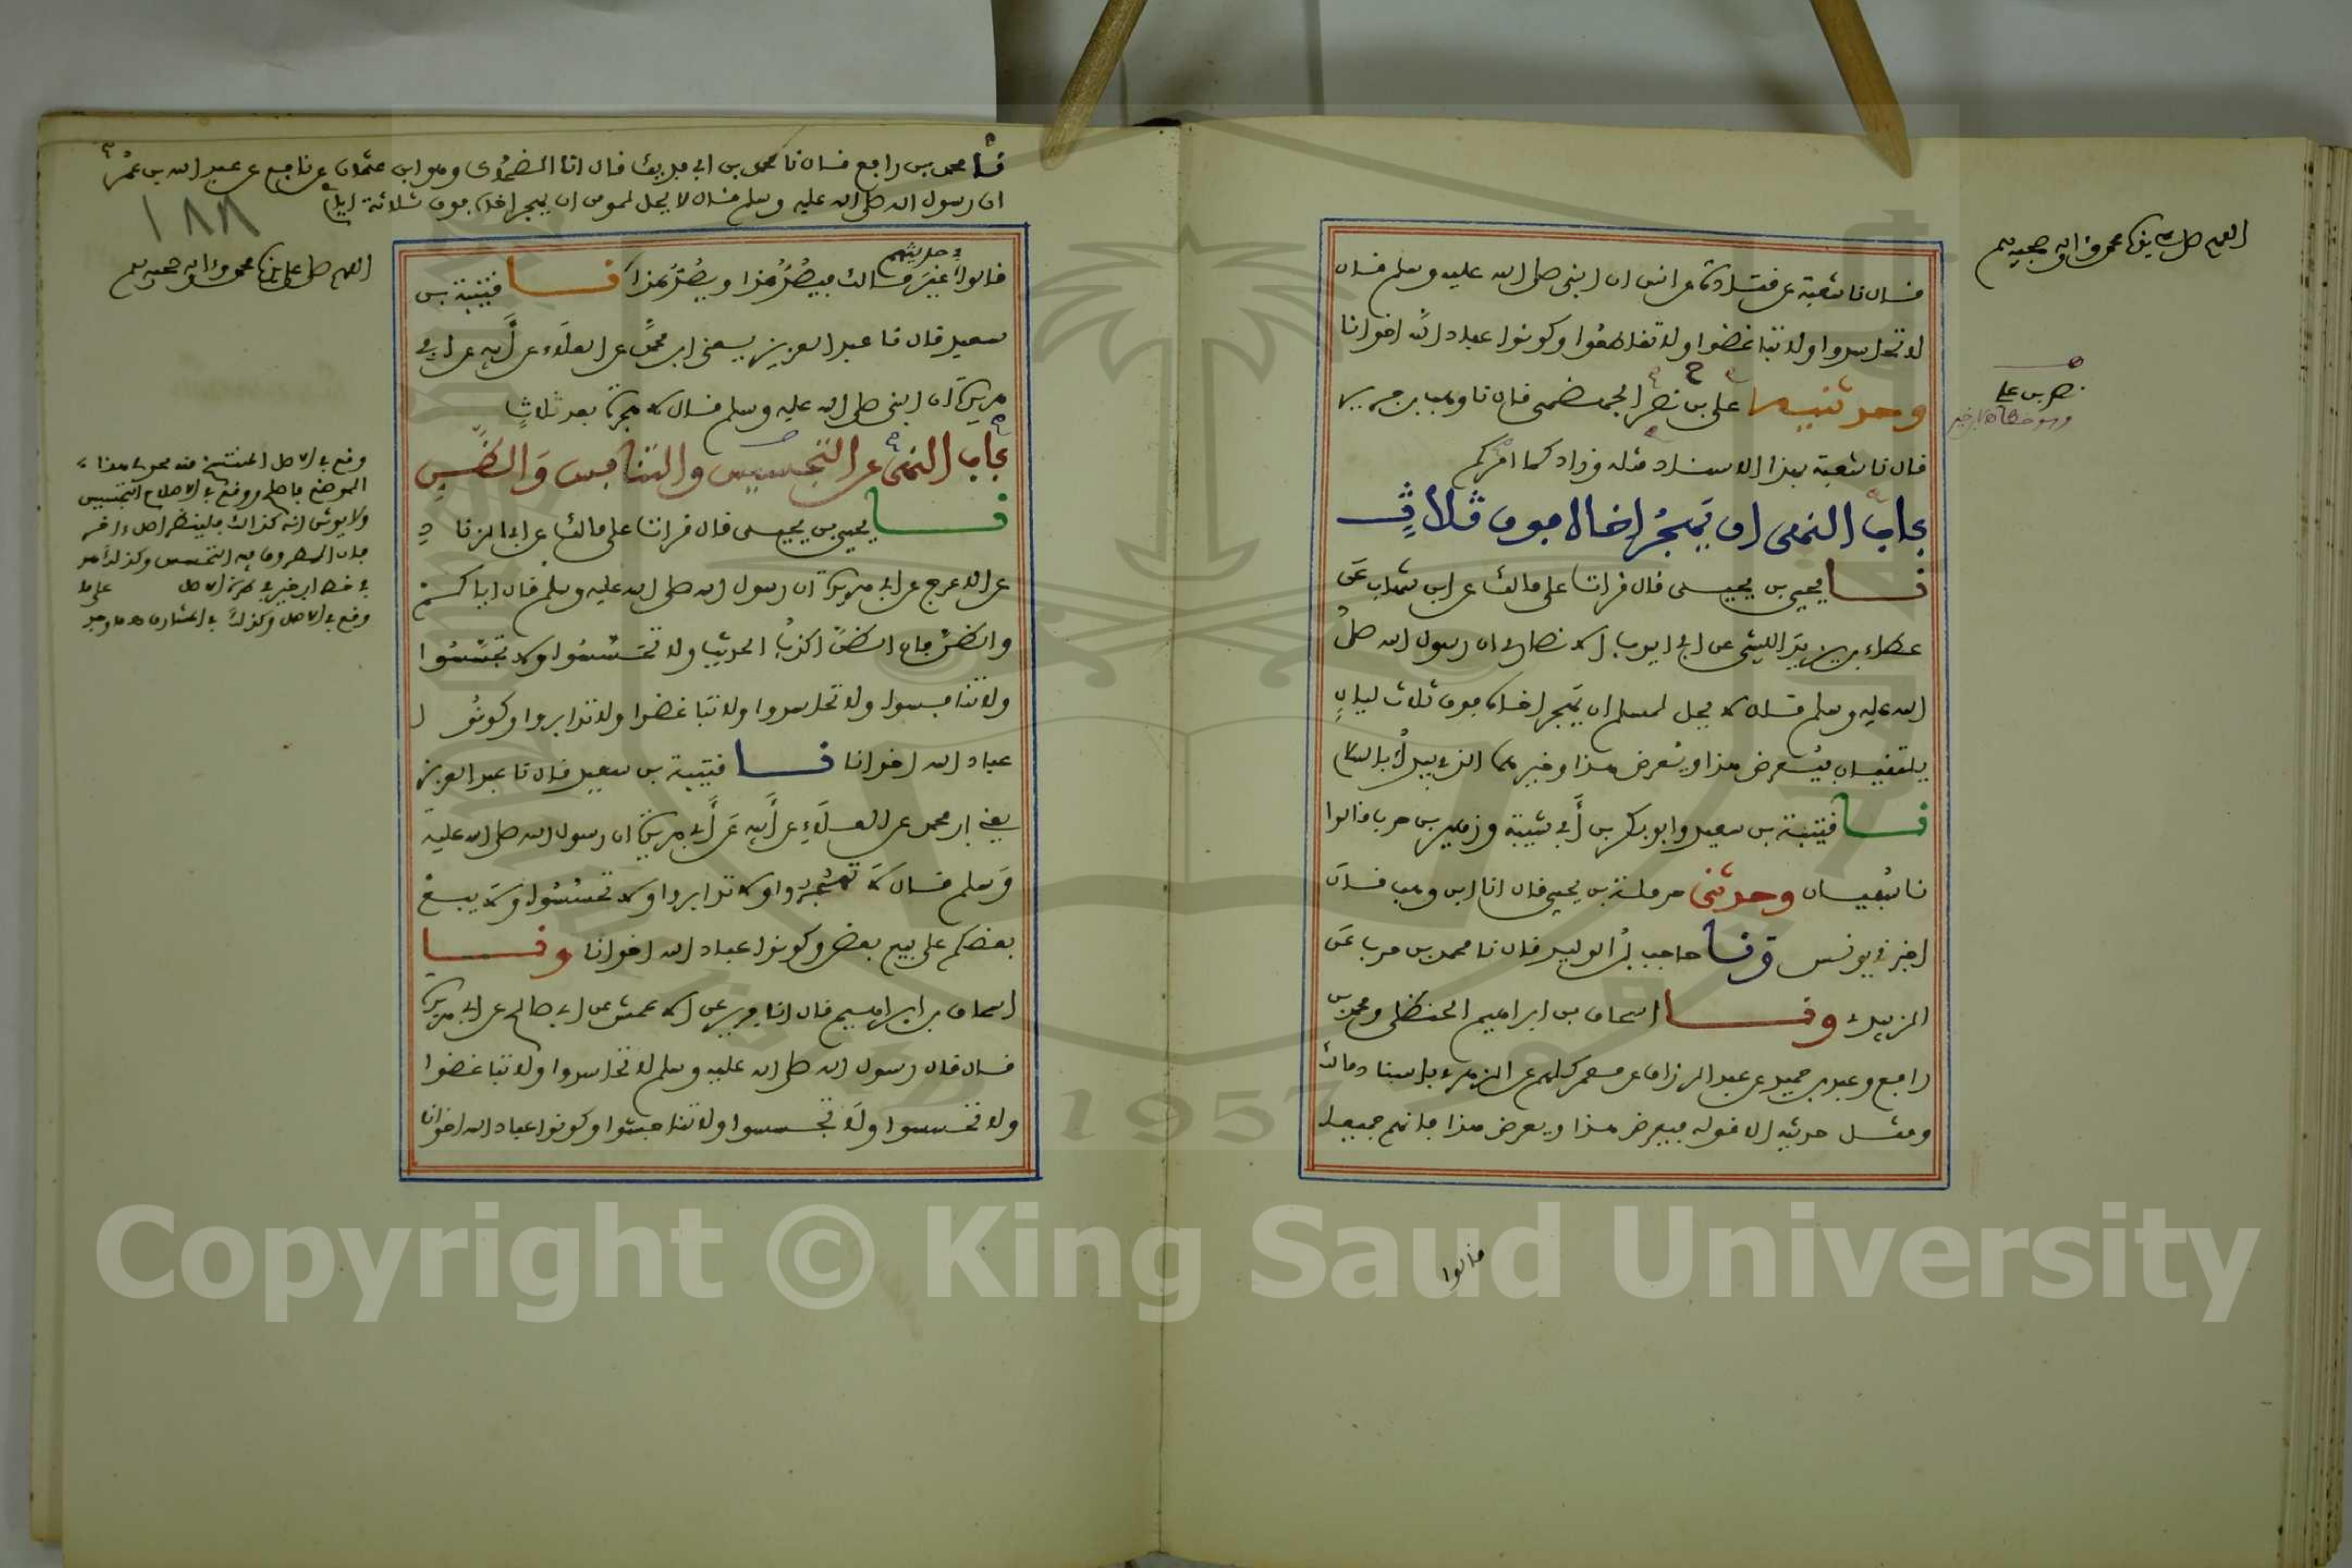 اللهم صل على سيدنا محمد وءاله وصحبه وسلم
قال نا شعبة عن قتادة عن انس ان النبى صلى الله عليه وسلم قال
لا تحاسدوا ولا تباغضوا ولا تقاطعوا وكونوا عباد الله اخوانا
وحدثنيه على بن نصر الجهضمى قال نا وهب بن جرير
نصر بن على
قال نا شعبة بهذا الاسناد مثله وزاد كما امركم
باب النهى ان يهجر اخاه فوق ثلاث
نا يحيى بن يحيى قال قرات على مالك عن ابن شهاب عن
عطاء بن يزيد الليثى عن ابى ايوب الانصارى ان رسول الله صلى
الله عليه وسلم قال لا يحل لمسلم ان يهجر اخاه فوق ثلاث ليال
يلتقيان فيعرض هذا ويعرض هذا وخيرهما الذى يبدأ بالسلام
نا قتيبة بن سعيد وابو بكر بن أبى شيبة وزهير بن حرب قالوا
نا سفيان وحدثنى حرملة بن يحيى قال انا ابن وهب قال
اخبرنى يونس ونا حاجب بن الوليد قال نا محمد بن حرب عن
الزبيدى ونا اسحاق بن ابراهيم الحنظلى ومحمد بن
رافع وعبد بن حميد عن عبد الرزاق عن معمر كلهم عن الزهرى باسناد مالك
ومثل حديثه الا قوله فيعرض هذا ويعرض هذا فانهم جميعا
قالوا
نا محمد بن رافع قال نا محمد بن ابى فديك قال انا الضحاك وهو ابن عثمان عن نافع عن عبد الله بن عمر
ان رسول الله صلى الله عليه وسلم قال لا يحل لمومن ان يهجر اخاه فوق ثلاثة ايام
١٨٨
اللهم صل على سيدنا محمد وءاله وصحبه وسلم
فى حديثهم
قالوا غير مالك فيصد هذا ويصد هذا نا قتيبة بن
سعيد قال نا عبد العزيز يعنى ابن محمد عن العلاء عن أبيه عن ابى
هريرة ان النبى صلى الله عليه وسلم قال لا هجرة بعد ثلاث
باب النهى عن التجسيس والتنافس والظن
نا يحيى بن يحيى قال قرات على مالك عن ابى الزناد
عن الاعرج عن ابى هريرة ان رسول الله صلى الله عليه وسلم قال اياكم
والظن فان الظن اكذب الحديث ولا تحسسوا ولا تجسسوا
ولا تنافسوا ولا تحاسدوا ولا تباغضوا ولا تدابروا وكونوا
عباد الله اخوانا نا قتيبة بن سعيد قال نا عبد العزيز
يعنى ابن محمد عن العلاء عن أبيه عن أبى هريرة ان رسول الله صلى الله عليه
وسلم قال لا تهجروا ولا تدابروا ولا تحسسوا ولا يبع
بعضكم على بيع بعض وكونوا عباد الله اخوانا ونا
اسحاق بن ابراهيم قال انا جرير عن الاعمش عن ابى صالح عن ابى هريرة
قال قال رسول الله صلى الله عليه وسلم لا تحاسدوا ولا تباغضوا
ولا تحسسوا ولا تجسسوا ولا تناجشوا وكونوا عباد الله اخوانا
وقع فى الاصل المنتسخ منه
ووقع فى الاصلاح التجسيس
Copyright © King Saud University
1957